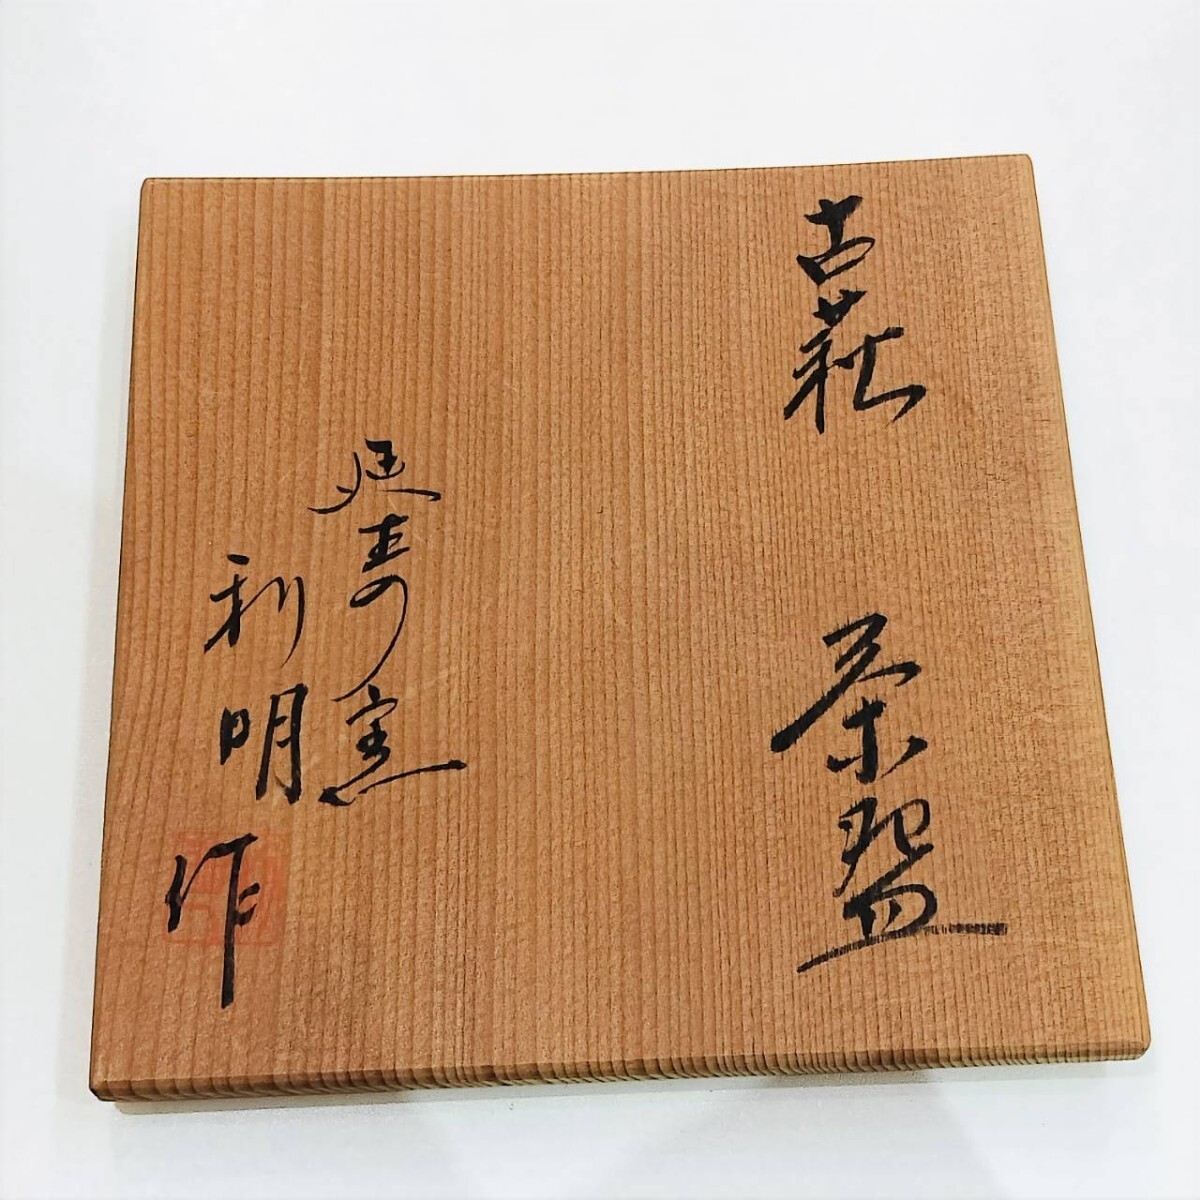 古萩 茶盌
延寿窯
利明作